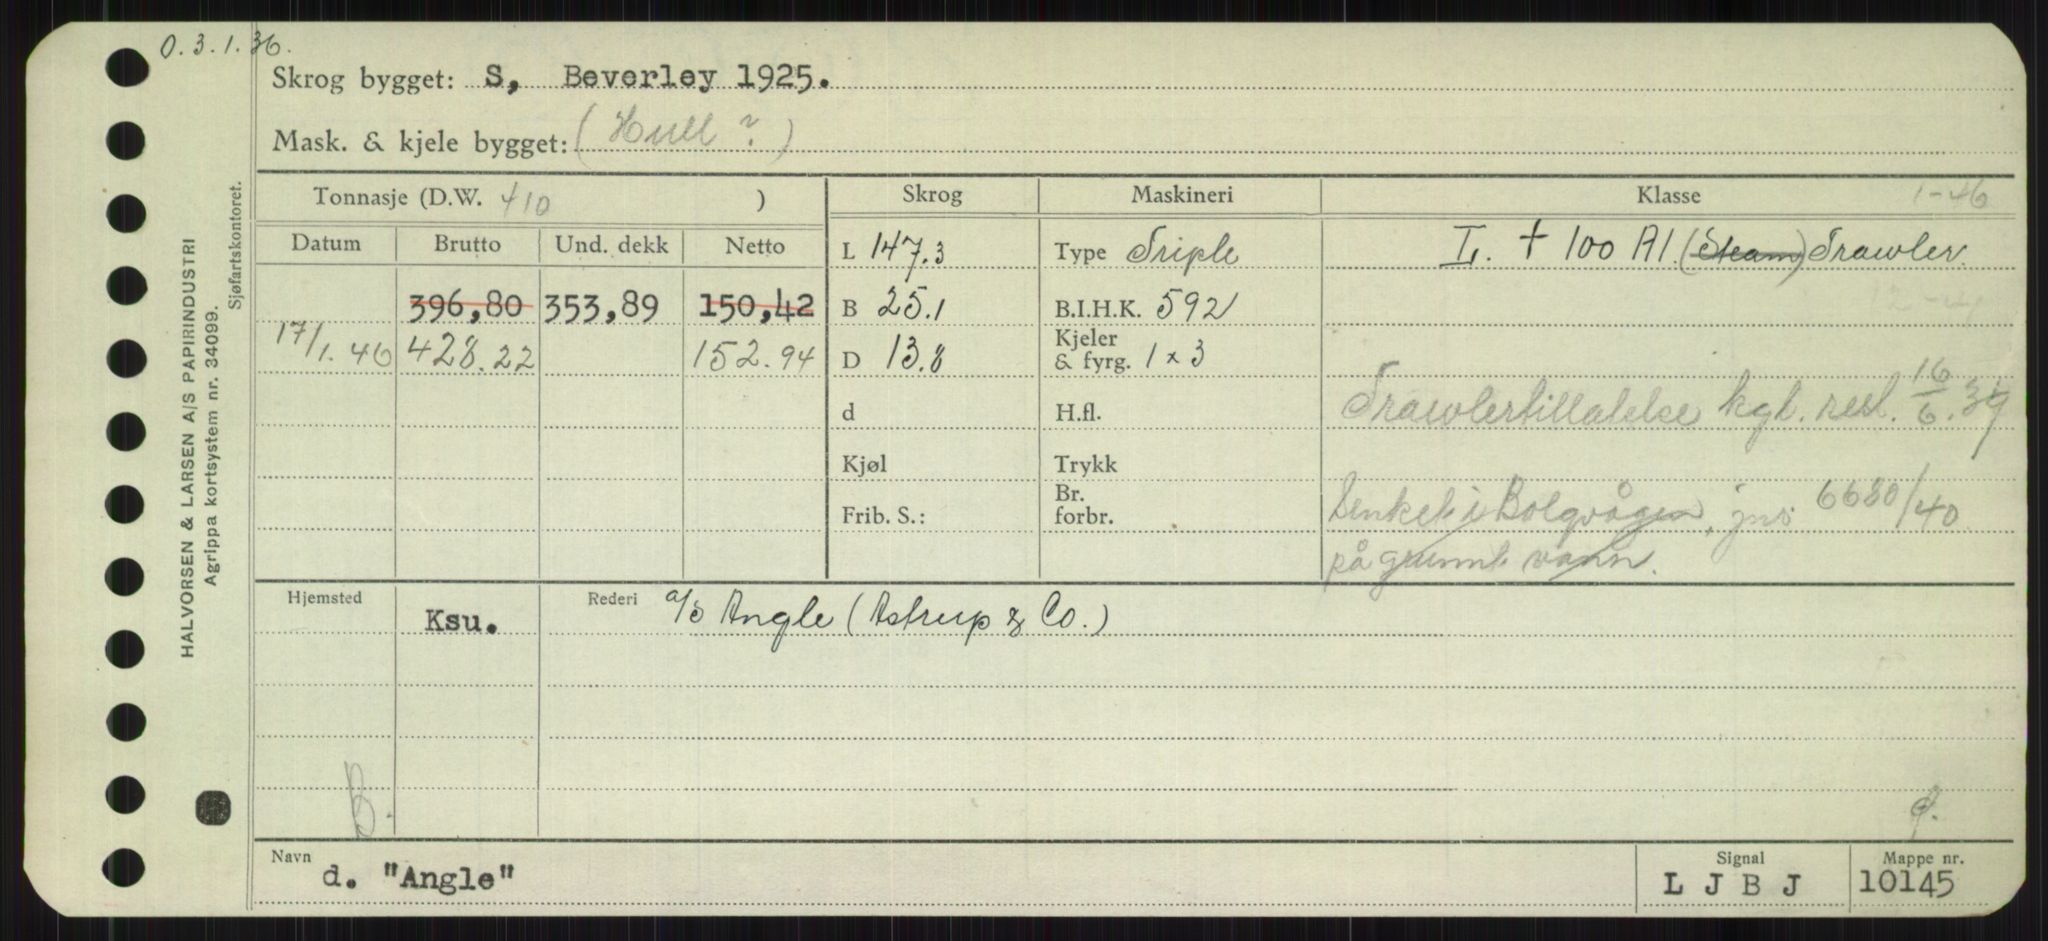 O. 3. 1. 36.
Skrog bygget: S, Beverley 1925.
Mask. & kjele bygget: (Hull ?)
HALVORSEN & LARSEN A/S PAPIRINDUSTRI
Agrippa kortsystem nr. 34099.
Sjøfartskontoret.
Tonnasje (D.W. 410 )
Skrog
Maskineri
Klasse 1-46
Datum Brutto Und. dekk Netto
L 147.3
Type Triple
L. + 100 A1. (Steam) Trawler.
396,80 353,89 150,42
B 25.1
B.I.H.K. 592
17/1. 46 428.22 152.94
D 13.8
Kjeler
& fyrg. 1 x 3
Trawlertillatelse kgl. resl. 16/6. 39
d
H.fl.
Kjøl
Trykk
Senket i Bolgvågen, jnr 6680/40
Frib. S.:
Br.
forbr.
på grunnt vann.
Hjemsted Ksu.
Rederi a/s Angle (Astrup & Co.)
B.
Navn d. "Angle"
Signal L J B J
Mappe nr. 10145